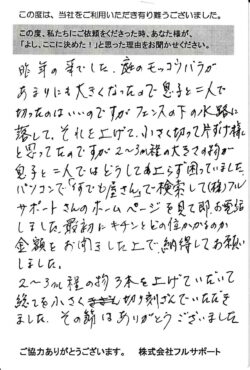 この度は、当社をご利用いただき有り難うございました。
この度、私たちにご依頼をくださった時、あなた様が、
「よし、ここに決めた!」と思った理由をお聞かせください。
昨年の事でした。庭のモッコウバラが
あまりにも大きくなったので息子と二人で
切ったのはいいのですがフェンスの下の水路に
落して、それを上げて、小さく切って片ずけ様
と思ってたのですが2〜3m程の大きさの物が
息子と二人ではどうしても上らず困っていました。
パソコンで「何でも屋さん」で検索して(株)フル
サポートさんのホームページを見て即、お電話
しました。最初にキチンとどの位かかるのか
金額をお聞きした上で、納得してお願い
しました。
2〜3m程の物3本を上げていただいて
終ても小さく切り刻ざんでいただき
ました。その節はありがとうございました
ご協力ありがとうございます。 株式会社フルサポート